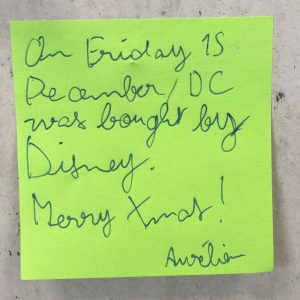 On Friday 15
December, DC
was bought by
Disney.
Merry Xmas!
Aurélia